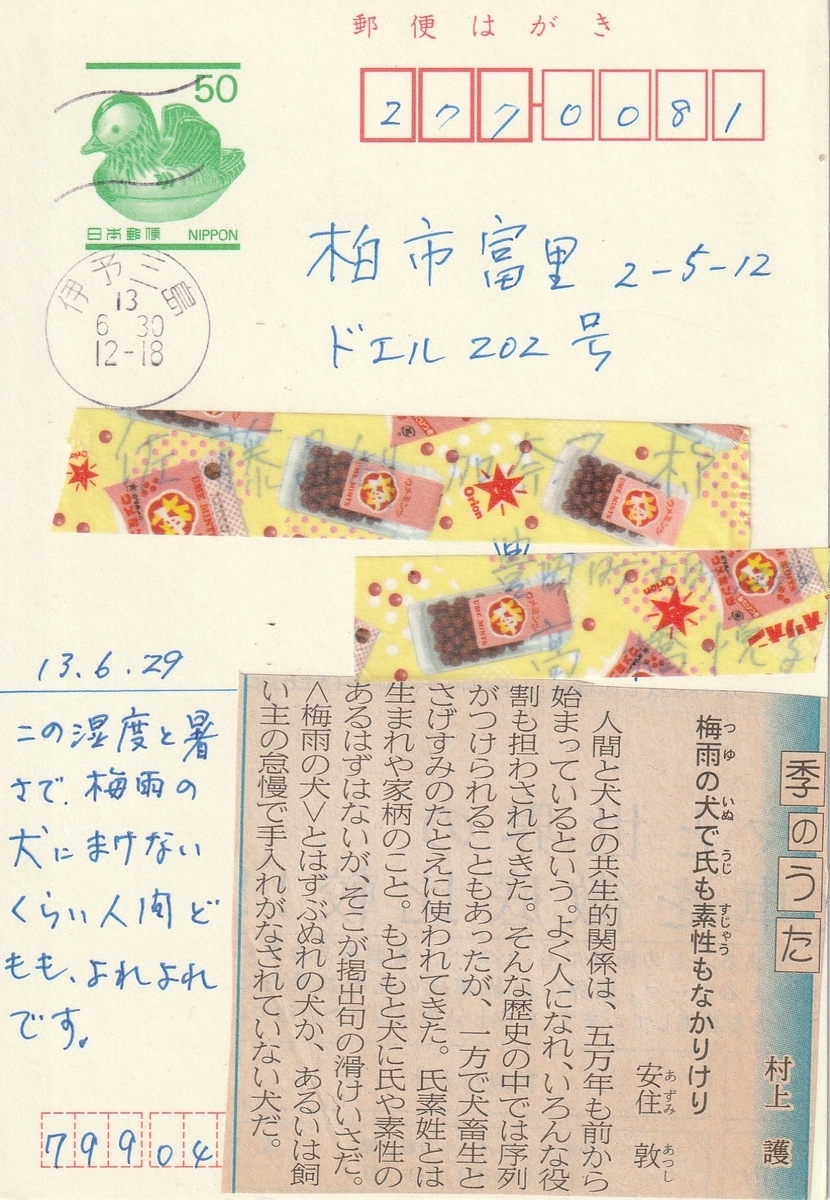 郵便はがき
50
日本郵便 NIPPON
277-0081
伊予三島
13
6 30
12-18
柏市富里 2-5-12
ドエル 202号
Orion
UME MINTS
ウメミンツ
Orion
UME MINTS
オリオン
13.6.29
この湿度と暑
さで、梅雨の
犬にまけない
くらい人間ど
もも、よれよれ
です。
79904
季のうた
村上 護
梅雨の犬で氏も素性もなかりけり
つゆ いぬ うじ すじゃう
安住 敦
あずみ あつし
人間と犬との共生的関係は、五万年も前から
始まっているという。よく人になれ、いろんな役
割も担わされてきた。そんな歴史の中では序列
がつけられることもあったが、一方で犬畜生と
さげすみのたとえに使われてきた。氏素姓とは
生まれや家柄のこと。もともと犬に氏や素性の
あるはずはないが、そこが掲出句の滑けいさだ。
＜梅雨の犬＞とはずぶぬれの犬か、あるいは飼
い主の怠慢で手入れがなされていない犬だ。